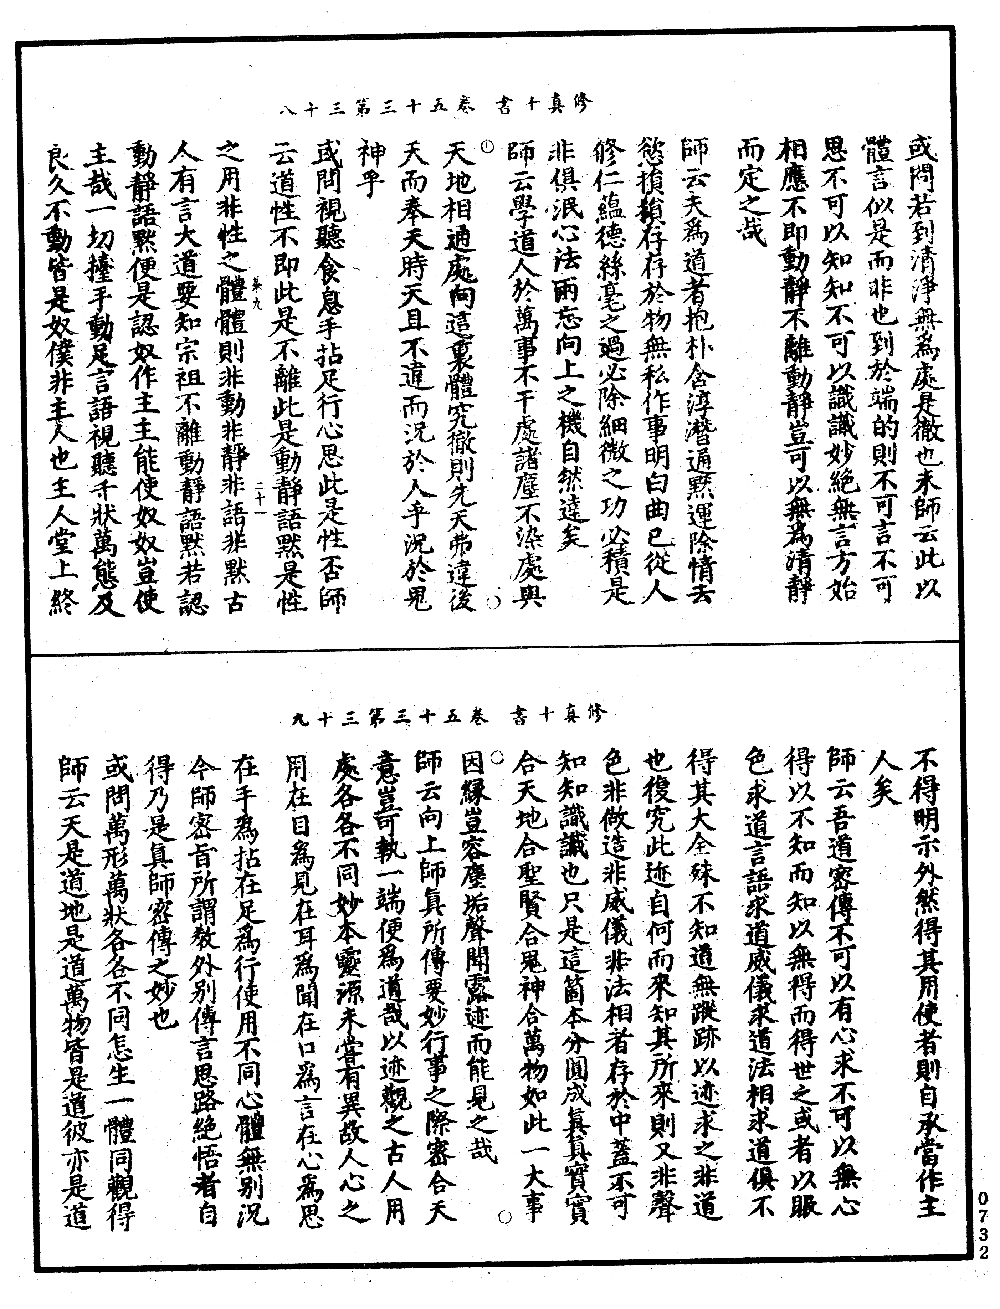 修真十書　卷五十三第三十八
或問若到清淨無為處是徹也未師云此以
體言似是而非也到於端的則不可言不可
思不可以知知不可以識識妙絶無言方始
相應不即動靜不離動靜豈可以無為清靜
而定之哉
師云夫為道者抱朴含淳潛通默運除情去
慾損損存存於物無私作事明白曲己從人
修仁蘊德絲毫之過必除細微之功必積是
非俱泯心法兩忘向上之機自然達矣
師云學道人於萬事不干處諸塵不染處與
天地相通處向這裏體究徹則先天弗違後
天而奉天時天且不違而況於人乎況於鬼
神乎
或問視聽食息手拈足行心思此是性否師
云道性不即此是不離此是動靜語默是性
之用非性之體體則非動非靜非語非默古
人有言大道要知宗祖不離動靜語默若認
動靜語默便是認奴作主主能使奴奴豈使
主哉一切擡手動足言語視聽千狀萬態及
良久不動皆是奴僕非主人也主人堂上終
修真十書　卷五十三第三十九
不得明示外然得其用使者則自承當作主
人矣
師云吾道密傳不可以有心求不可以無心
得以不知而知以無得而得世之或者以眼
色求道言語求道威儀求道法相求道俱不
得其大全殊不知道無蹤跡以迹求之非道
也復究此迹自何而來知其所來則又非聲
色非做造非威儀非法相者存於中蓋不可
知知識識也只是這箇本分圓成眞眞實實
合天地合聖賢合鬼神合萬物如此一大事
因緣豈容塵垢聲聞露迹而能見之哉
師云向上師眞所傳要妙行事之際密合天
意豈可執一端便為道哉以迹觀之古人用
處各各不同妙本靈源未嘗有異故人心之
用在目為見在耳為聞在口為言在心為思
在手為拈在足為行使用不同心體無別況
今師密旨所謂教外別傳言思路絶悟者自
得乃是真師密傳之妙也
或問萬形萬狀各各不同怎生一體同觀得
師云天是道地是道萬物皆是道彼亦是道
0732